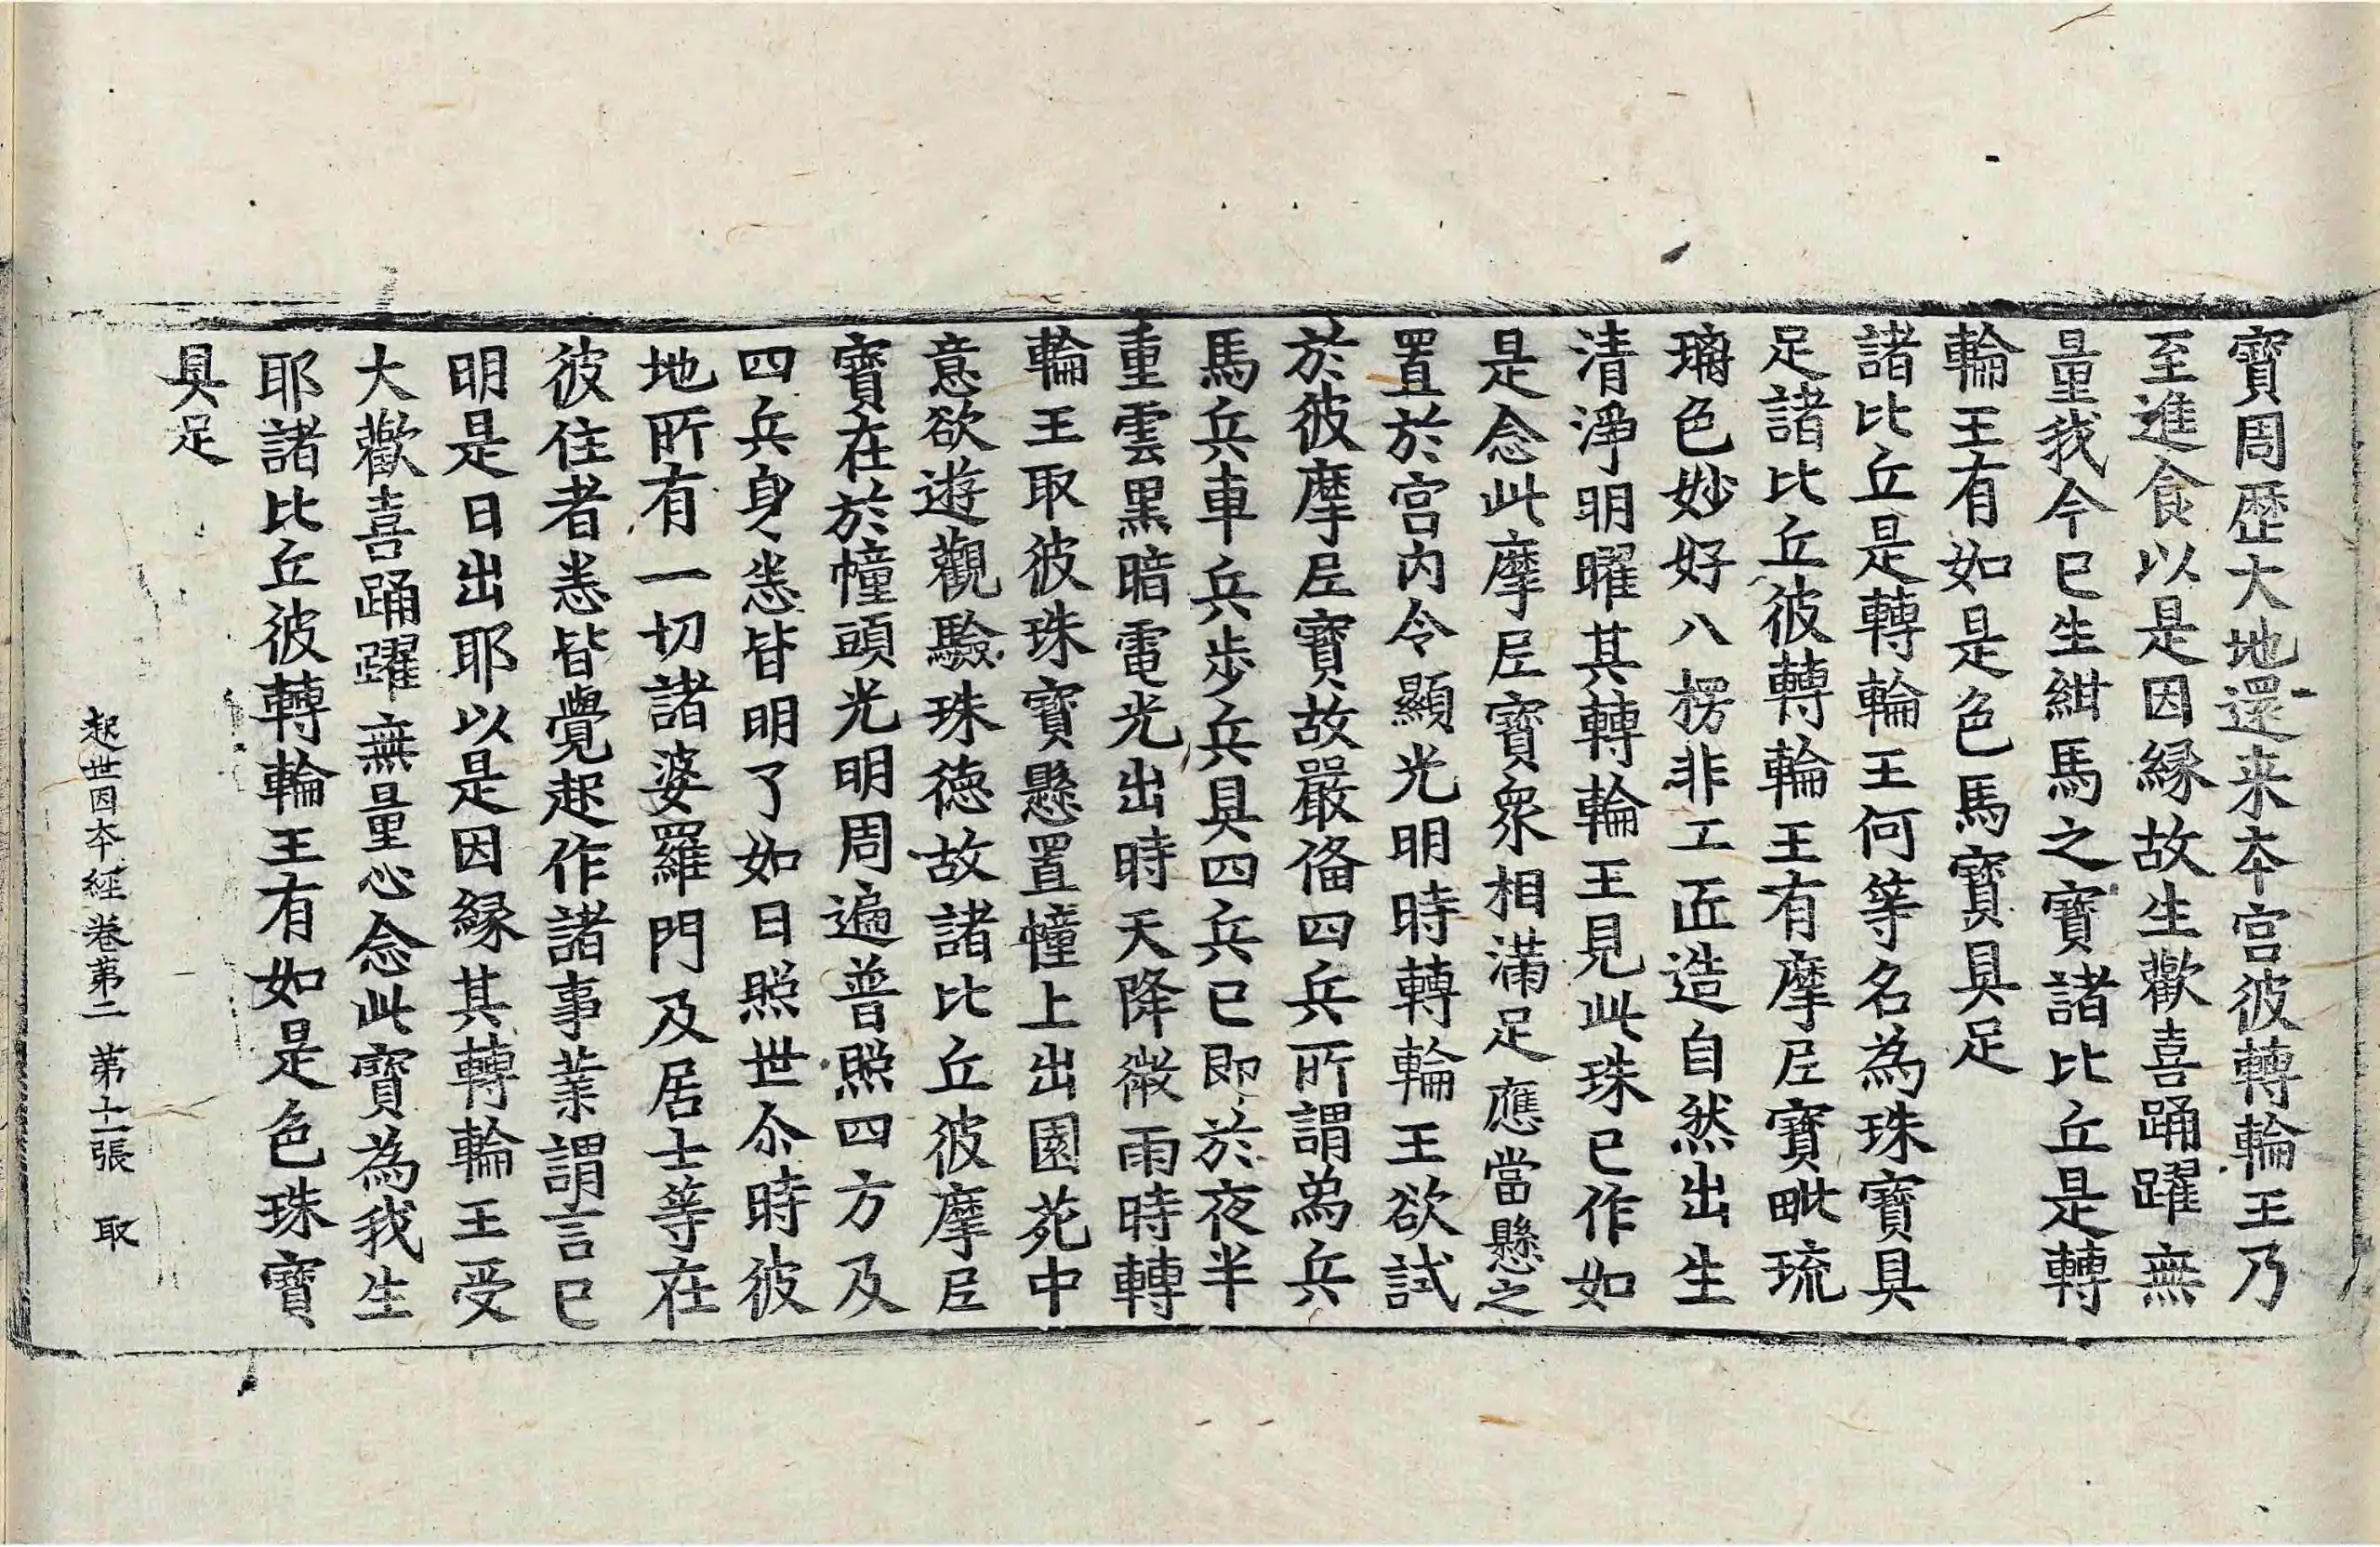 寶周歷大地還来本宮彼轉輪王乃
至進食以是因緣故生歡喜踊躍無
量我今已生紺馬之寶諸比丘是轉
輪王有如是色馬寶具足
諸比丘是轉輪王何等名為珠寶具
足諸比丘彼轉輪王有摩尼寶毗琉
璃色妙好八楞非工匠造自然出生
清淨明曜其轉輪王見此珠已作如
是念此摩尼寶衆相滿足應當懸之
置於宮內令顯光明時轉輪王欲試
於彼摩尼寶故嚴俻四兵所謂爲兵
馬兵車兵步兵具四兵已即於夜半
重雲黑暗電光出時天降微雨時轉
輪王取彼珠寶懸置幢上出園苑中
意欲遊觀驗珠德故諸比丘彼摩尼
寶在於幢頭光明周遍普照四方及
四兵身悉皆明了如日照世尒時彼
地所有一切諸婆羅門及居士等在
彼住者悉皆覺起作諸事業謂言已
明是日出耶以是因緣其轉輪王受
大歡喜踊躍無量心念此寶為我生
耶諸比丘彼轉輪王有如是色珠寶
具足
起世因本經卷第二 第十一張 取